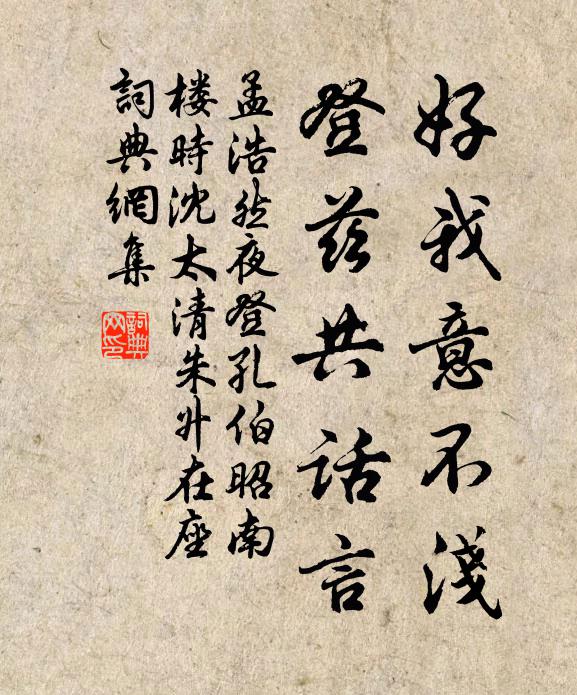 好我意不淺
登茲共話言
孟浩然夜登孔伯昭南
楼時沈太清朱升在座
詞典網集
詞典網印